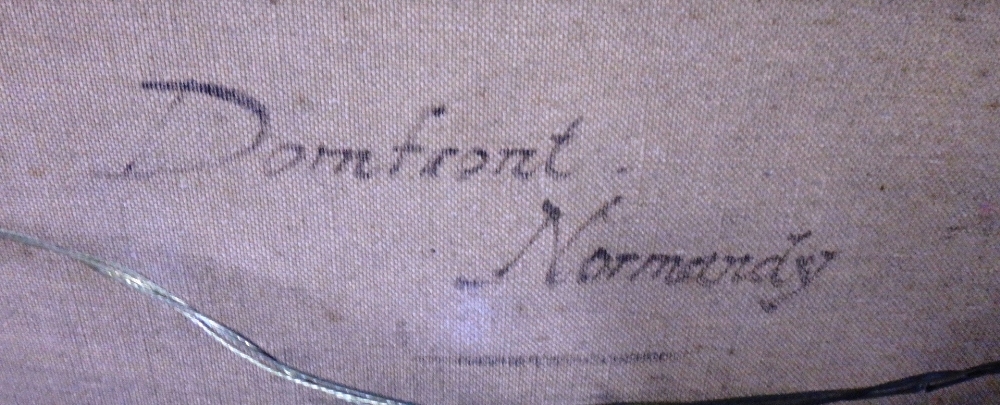 Domfront.
Normandy